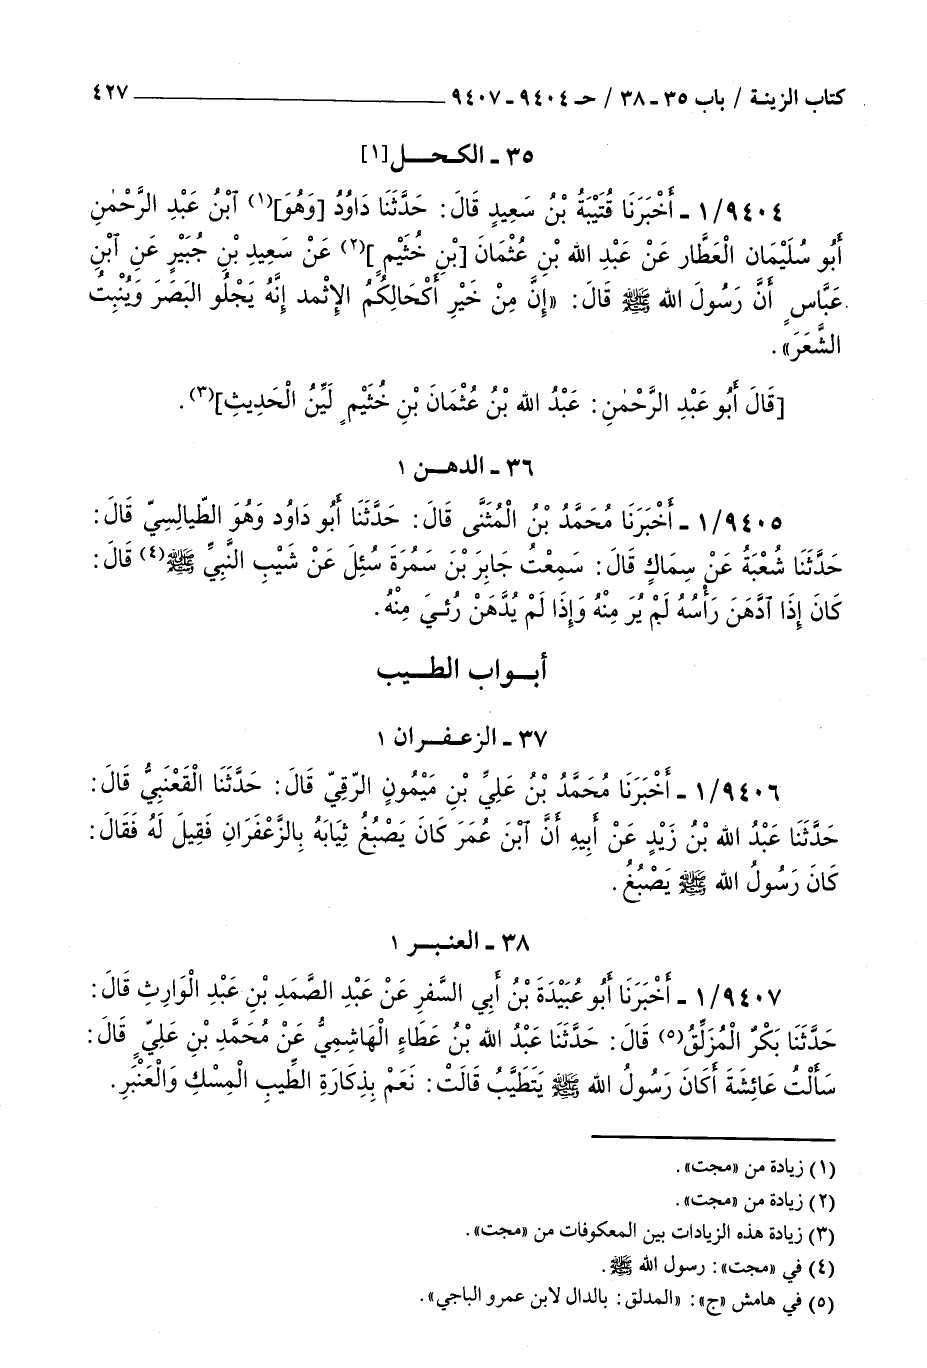 كتاب الزينة / باب ٣٥ - ٣٨ / حـ ٩٤٠٤ - ٩٤٠٧ ٤٢٧
٣٥ - الكـحـــل [١]
١/٩٤٠٤ - أَخْبَرَنَا قُتَيْبَةُ بْنُ سَعِيدٍ قَالَ: حَدَّثَنَا دَاوُدُ [وَهُوَ](١) ٱبْنُ عَبْدِ الرَّحْمٰنِ
أَبُو سُلَيْمَان الْعَطَّار عَنْ عَبْدِ الله بْنِ عُثْمَانَ [بْنِ خُثَيْمٍ](٢) عَنْ سَعِيدِ بْنِ جُبَيْرٍ عَنِ ٱبْنِ
عَبَّاسٍ أَنَّ رَسُولَ الله ﷺ قَالَ: «إِنَّ مِنْ خَيْرِ أَكْحَالِكُمُ الإِثْمد إِنَّهُ يَجْلُو البَصَرَ وَيُنْبِتُ
الشَّعَرَ».
[قَالَ أَبُو عَبْدِ الرَّحْمٰنِ: عَبْدُ الله بْنُ عُثْمَانَ بْنِ خُثَيْمٍ لَيِّنُ الْحَدِيثِ](٣).
٣٦ - الدهـــن ١
١/٩٤٠٥ - أَخْبَرَنَا مُحَمَّدُ بْنُ الْمُثَنَّى قَالَ: حَدَّثَنَا أَبُو دَاوُد وَهُوَ الطّيالِسِيّ قَالَ:
حَدَّثَنَا شُعْبَةُ عَنْ سِمَاكٍ قَالَ: سَمِعْتُ جَابِرَ بْنَ سَمُرَةَ سُئِلَ عَنْ شَيْبِ النَّبِيِّ ﷺ(٤) قَالَ:
كَانَ إِذَا ٱدَّهَنَ رَأْسُهُ لَمْ يُرَ مِنْهُ وَإِذَا لَمْ يُدَّهَنْ رُئِيَ مِنْهُ.
أبــواب الطــيب
٣٧ - الزعـفــران ١
١/٩٤٠٦ - أَخْبَرَنَا مُحَمَّدُ بْنُ عَلِيِّ بْنِ مَيْمُونٍ الرّقِيّ قَالَ: حَدَّثَنَا الْقَعْنَبِيُّ قَالَ:
حَدَّثَنَا عَبْدُ الله بْنُ زَيْدٍ عَنْ أَبِيهِ أَنَّ ٱبْنَ عُمَرَ كَانَ يَصْبُغُ ثِيَابَهُ بِالزَّعْفَرَانِ فَقِيلَ لَهُ فَقَالَ:
كَانَ رَسُولُ الله ﷺ يَصْبُغُ.
٣٨ - العنبــر ١
١/٩٤٠٧ - أَخْبَرَنَا أَبُو عُبَيْدَةَ بْنُ أَبِي السَّفرِ عَنْ عَبْدِ الصَّمَدِ بْنِ عَبْدِ الْوَارِثِ قَالَ:
حَدَّثَنَا بَكْرٌ الْمُزَلِّقُ(٥) قَالَ: حَدَّثَنَا عَبْدُ الله بْنُ عَطَاءٍ الْهَاشِمِيُّ عَنْ مُحَمَّدِ بْنِ عَلِيٍّ قَالَ:
سَأَلْتُ عَائِشَةَ أَكَانَ رَسُولُ الله ﷺ يَتَطَيَّبُ قَالَتْ: نَعَمْ بِذِكَارَةِ الطِّيبِ الْمِسْكِ وَالْعَنْبَرِ.
(١) زيادة من «مجت».
(٢) زيادة من «مجت».
(٣) زيادة هذه الزيادات بين المعكوفات من «مجت».
(٤) في «مجت»: رسول الله ﷺ.
(٥) في هامش «ج»: «المدلق: بالدال لابن عمرو الباجي».